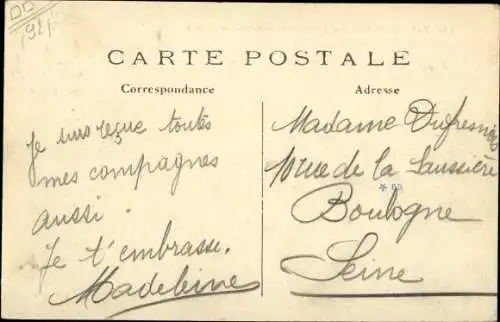 1921
CARTE POSTALE
Correspondance
Adresse
Je suis reçue toutes
mes compagnes
aussi.
Je t'embrasse.
Madeleine
Madame Dufresnes
10 rue de la Saussière
Boulogne
Seine